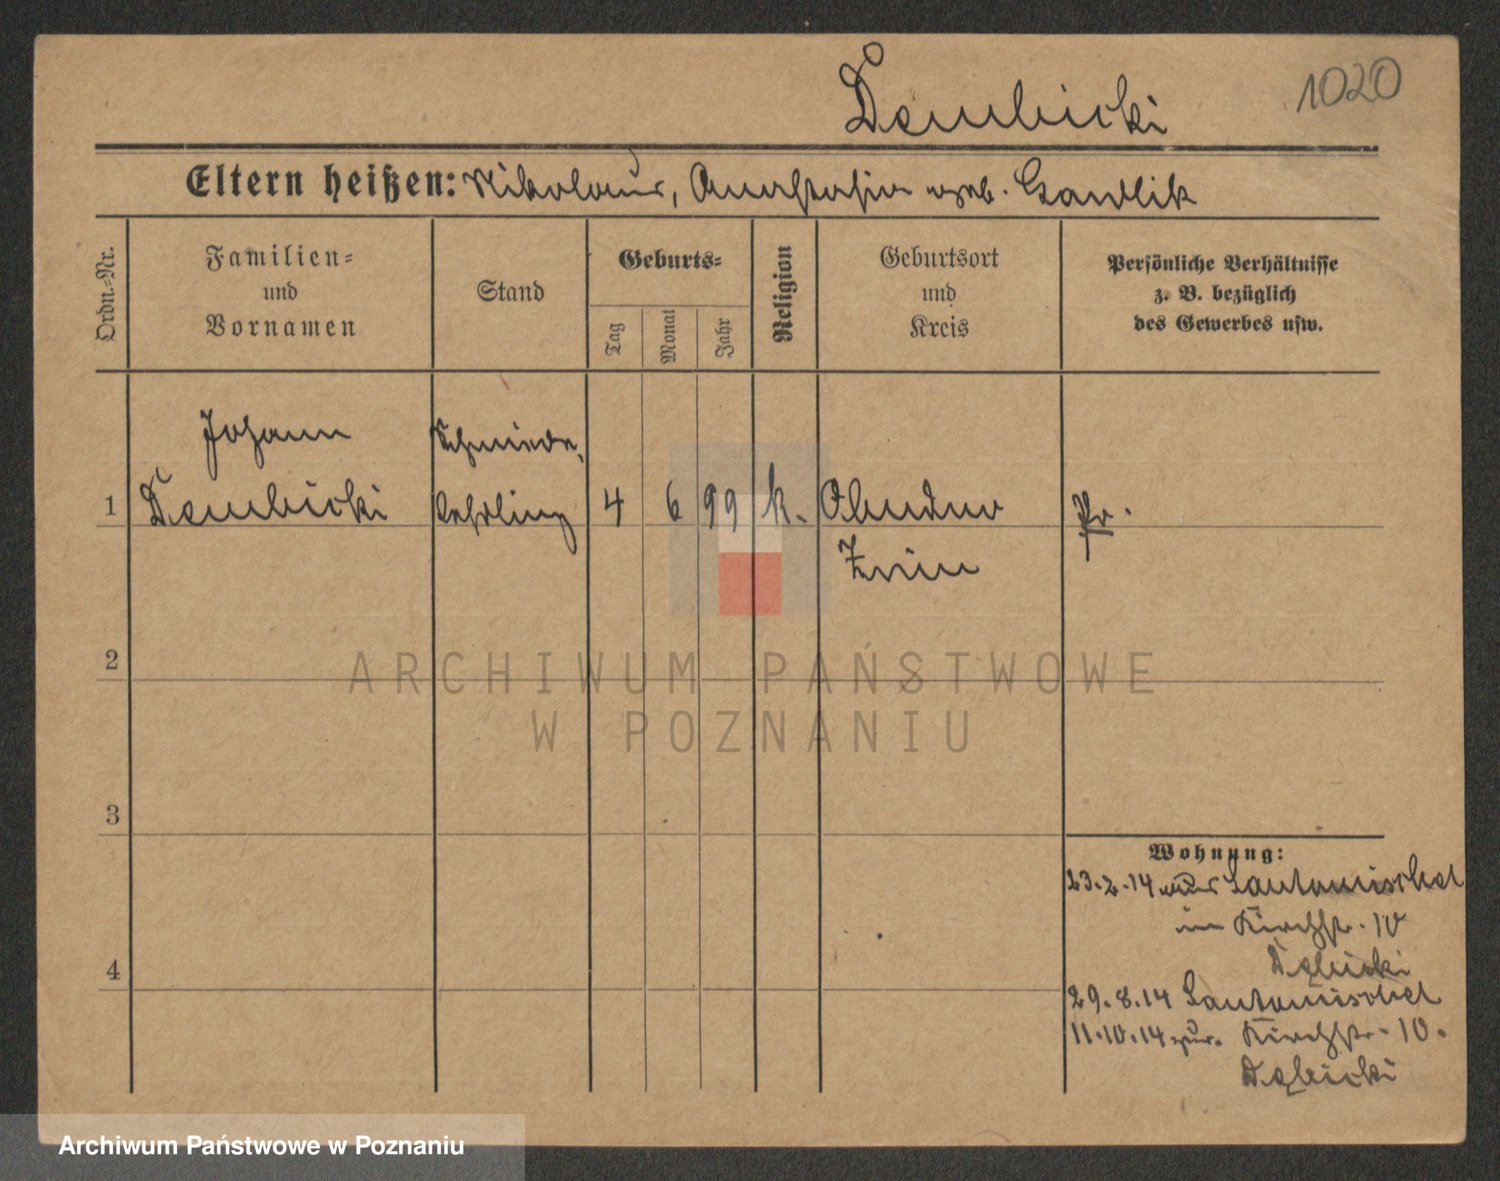 Dembicki
1020
Eltern heißen: Nikolaus, Anastasia geb. Gawlik
Ordn.-Nr.
Familien-
und
Vornamen
Stand
Geburts-
Tag
Monat
Jahr
Religion
Geburtsort
und
Kreis
Persönliche Verhältnisse
z. B. bezüglich
des Gewerbes usw.
Johann
Schmiede-
1 Dembicki lehrling 4 6 99 k. Obudno Pr.
Znin
2
ARCHIWUM PAŃSTWOWE
W POZNANIU
3
Wohnung:
23.2.14 aus
in Kirchstr. 10
Dębicki
29.8.14
11.10.14 zur. Kirchstr. 10.
Dębicki
4
Archiwum Państwowe w Poznaniu